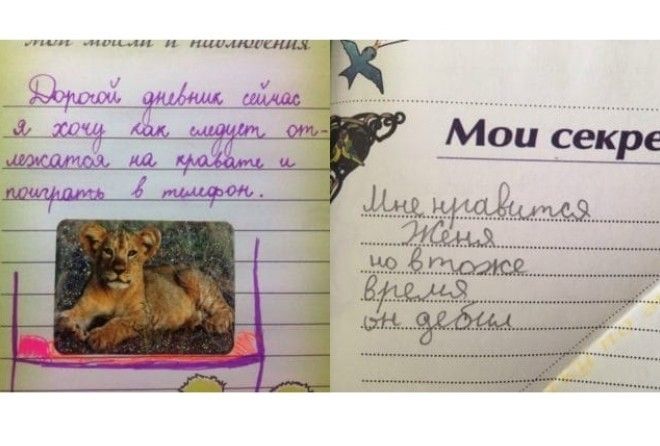 Мои мысли и наблюдения
Дорогой дневник сейчас
я хочу как следует от-
лежатся на кравате и
поиграть в телефон.
Мои секре
Мне нравится
Женя
но в тоже
время
он дебил